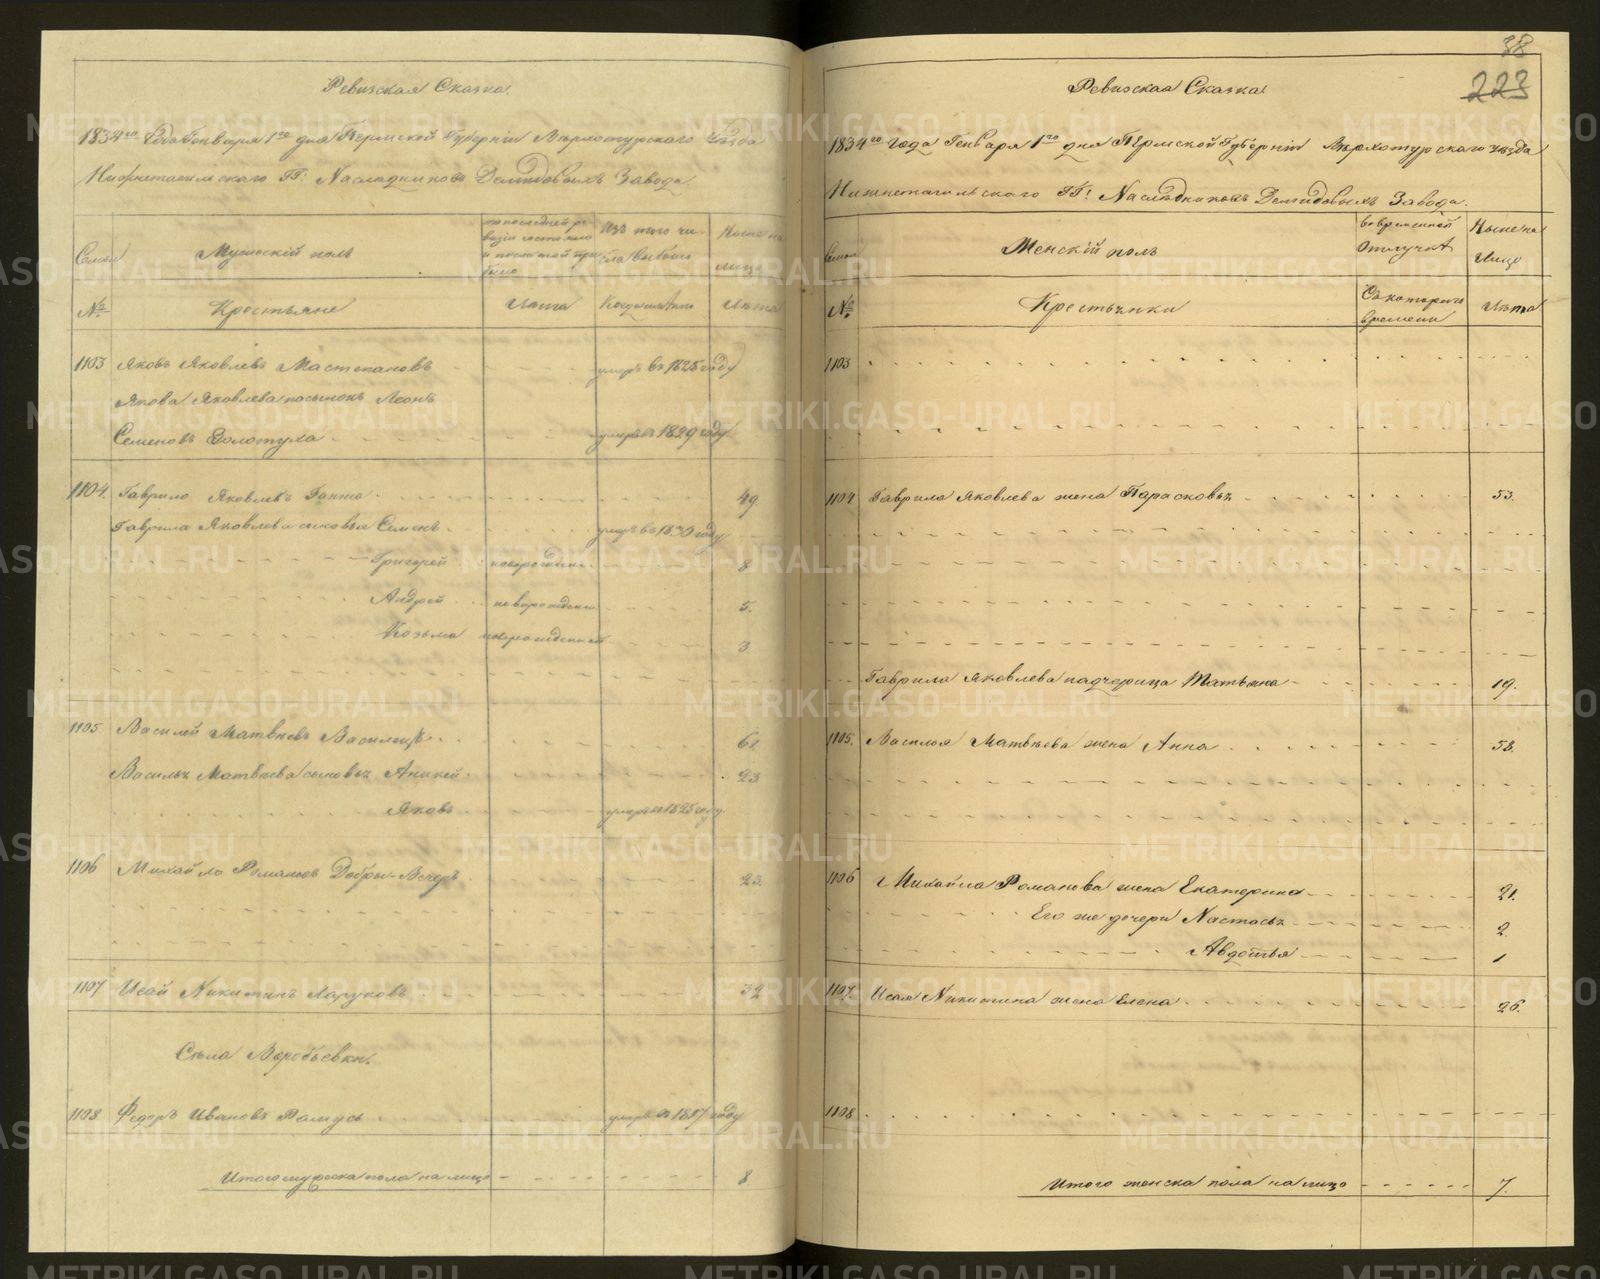 Ревизская Сказка.
1834го Года Генваря 1го дня Пермской Губернiи Верхотурского уѣзда
Нижнетагильскаго ГГ: Наследниковъ Демидовыхъ Завода.
Семьи
Мужескiй полъ
Изъ того числа выбыло
Ныне на лицо
№
Крестьяне
Лѣта
Когда имянно
Лѣта
1103 Яковъ Яковлевъ Мастепановъ умеръ въ 1825 году
Якова Яковлева пасынокъ Леонъ
Семеновъ Золотуха умеръ въ 1829 году
1104. Гаврило Яковлевъ Гапта 49.
Гаврила Яковлева сыновья Семенъ умеръ въ 1830 году
Григорей новорожденъ 8
Андрей новорожденъ 5.
Козьма новорожденный 3
1105 Василей Матвѣевъ Василецъ 61.
Васильъ Матвѣева сыновьъ Аникей 23
Яковъ умеръ въ 1825 году
1106 Михайло Романовъ Добры-Вечеръ 23.
1107 Исай Никитинъ Ларуковъ 32
Села Воробьевки.
1108 Федоръ Ивановъ Рамусь умеръ въ 1817 году
Итого мужеска пола на лицо 8
38
223
Ревизская Сказка.
1834го года Генваря 1го дня Пермской Губернiи Верхотурскаго уѣзда
Нижнетагильскаго ГГ: Наслѣдниковъ Демидовыхъ Завода.
Семьи
Женскiй полъ
Во временной отлучкѣ
Ныне на лицо
№
Крестьянки
Съ котораго времени
Лѣта
1103
1104 Гаврила Яковлева жена Парасковья 53.
Гаврила Яковлева падчерица Татьяна 19.
1105. Василья Матвѣева жена Анна 58.
1106 Михайла Романова жена Екатерина 21.
Его же дочери Настасья 2.
Авдотья 1
1107. Исая Никитина жена Елена 26.
1108
Итого женска пола на лицо 7.
METRIKI.GASO-URAL.RU